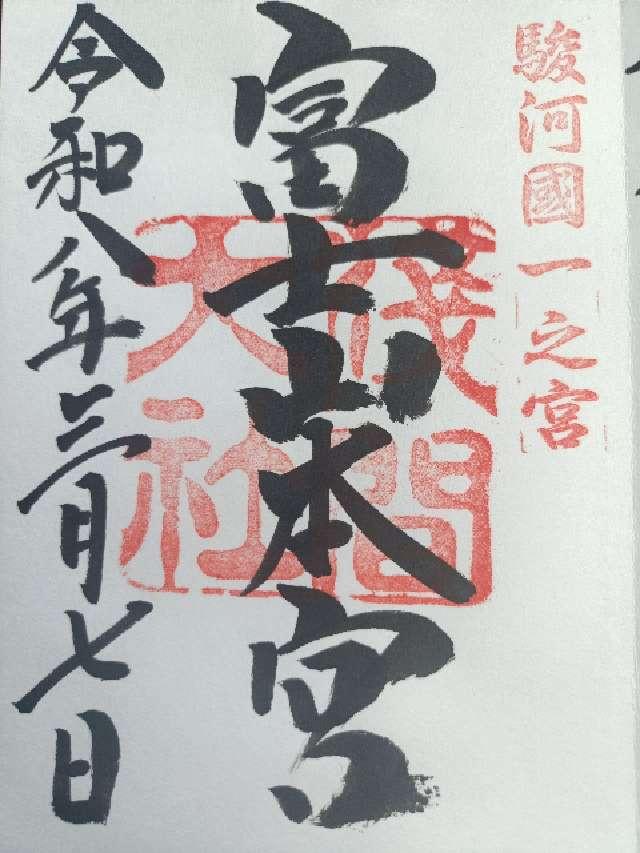 駿河國一之宮
富士山本宮
浅間
大社
令和八年三月七日